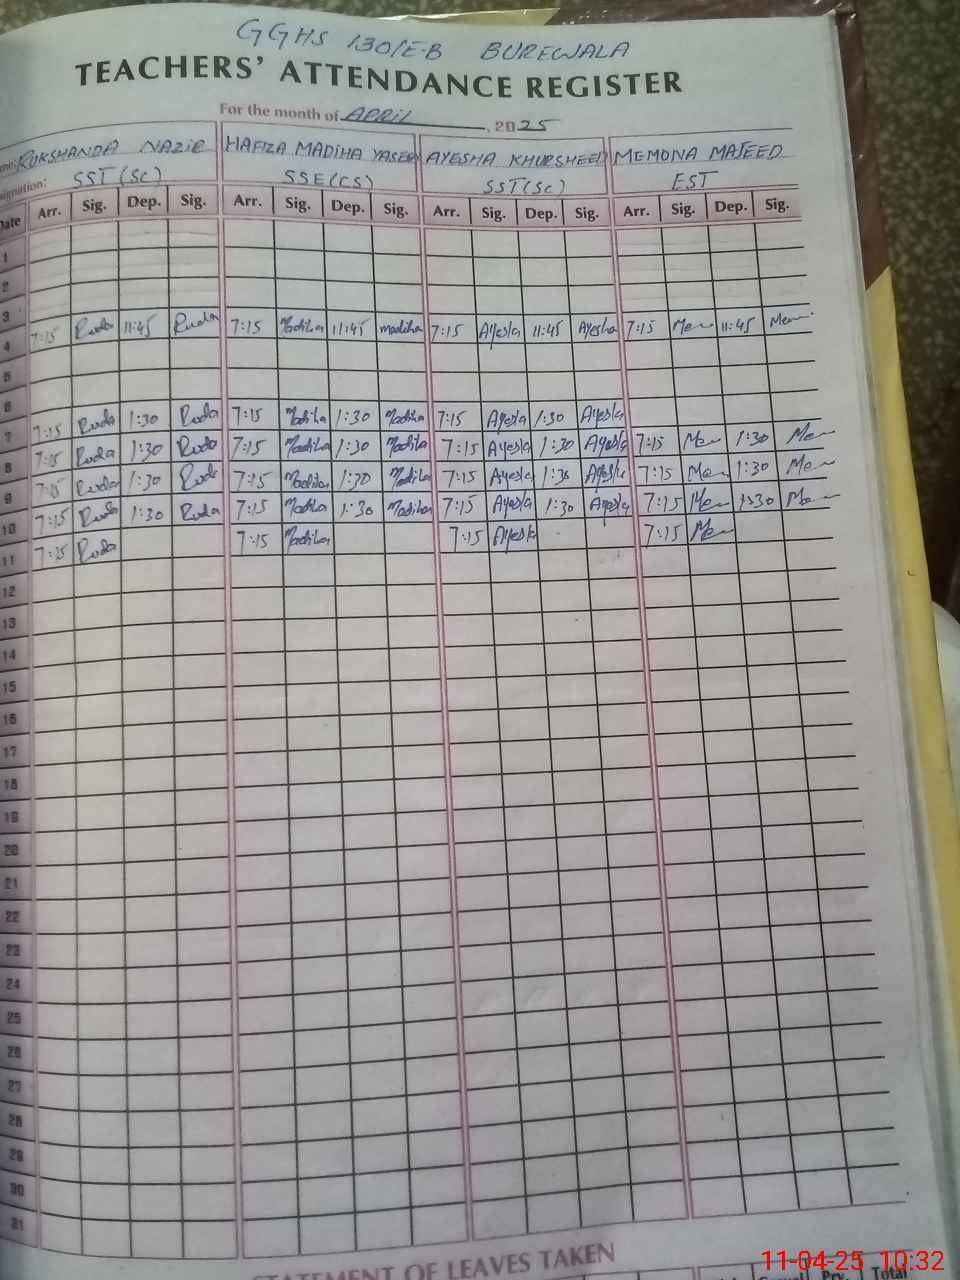 GGHS 130/E-B BUREWALA
TEACHERS' ATTENDANCE REGISTER
For the month of APRIL, 2025
RUKSHANDA NAZIR HAFIZA MADIHA YASEEN AYESHA KHURSHEED MEMONA MAJEED
SST(SC) SSE(CS) SST(SC) EST
Date Arr. Sig. Dep. Sig. Arr. Sig. Dep. Sig. Arr. Sig. Dep. Sig. Arr. Sig. Dep. Sig.
1
2
3
4 7:15 11:45 7:15 Madiha 11:45 madiha 7:15 Ayesha 11:45 Ayesha 7:15 Mem 11:45 Mem
5
6
7 7:15 1:30 7:15 Madiha 1:30 Madiha 7:15 Ayesha 1:30 Ayesha
8 7:15 1:30 7:15 Madiha 1:30 Madiha 7:15 Ayesha 1:30 Ayesha 7:15 Mem 1:30 Mem
9 7:15 1:30 7:15 Madiha 1:30 Madiha 7:15 Ayesha 1:30 Ayesha 7:15 Mem 1:30 Mem
10 7:15 1:30 7:15 Madiha 1:30 Madiha 7:15 Ayesha 1:30 Ayesha 7:15 Mem 1:30 Mem
11 7:15 7:15 Madiha 7:15 Ayesha 7:15 Mem
12
13
14
15
16
17
18
19
20
21
22
23
24
25
26
27
28
29
30
31
STATEMENT OF LEAVES TAKEN
Total
11-04-25 10:32